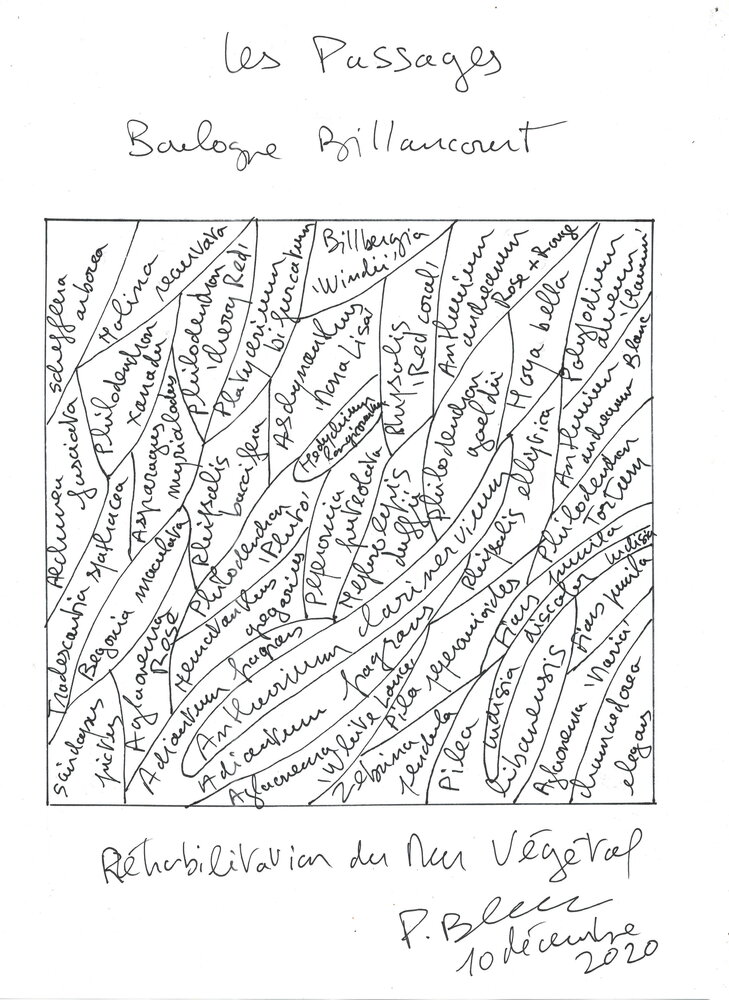 Les Passages
Boulogne Billancourt
Schefflera
arborea
Molina
recurvata
Philodendron
'cherry Red'
Platycerium
bifurcatum
Billbergia
'Windii'
Aeschynanthus
'Mona Lisa'
Rhipsalis
'Red coral'
Anthurium
andreanum
Rose + Rouge
Hoya bella
Polypodium
aureum
Anthurium
andreanum Blanc
Aechmea
fasciata
Philodendron
xanadu
Asparagus
myriocladus
Rhipsalis
baccifera
Hedychium
Philodendron
goeldii
Rhipsalis elliptica
Philodendron
Tortum
Tradescantia spathacea
Begonia maculata
Philodendron
'Pluto'
Peperomia
puteolata
Nephrolepis
duffii
Nematanthus
gregarius
Aglaonema
Rose
Adiantum fragrans
Anthurium clarinervium
Adiantum fragrans
Ficus pumila
discolor
Ludisia
Ficus pumila
Scindapsus
pictus
Aglaonema
'White Lance'
Pilea peperomioides
Zebrina
pendula
Pilea
libanensis
Ludisia
Aglaonema 'Maria'
chamaedorea
elegans
Réhabilitation du Mur Végétal
P. Blanc
10 décembre
2020